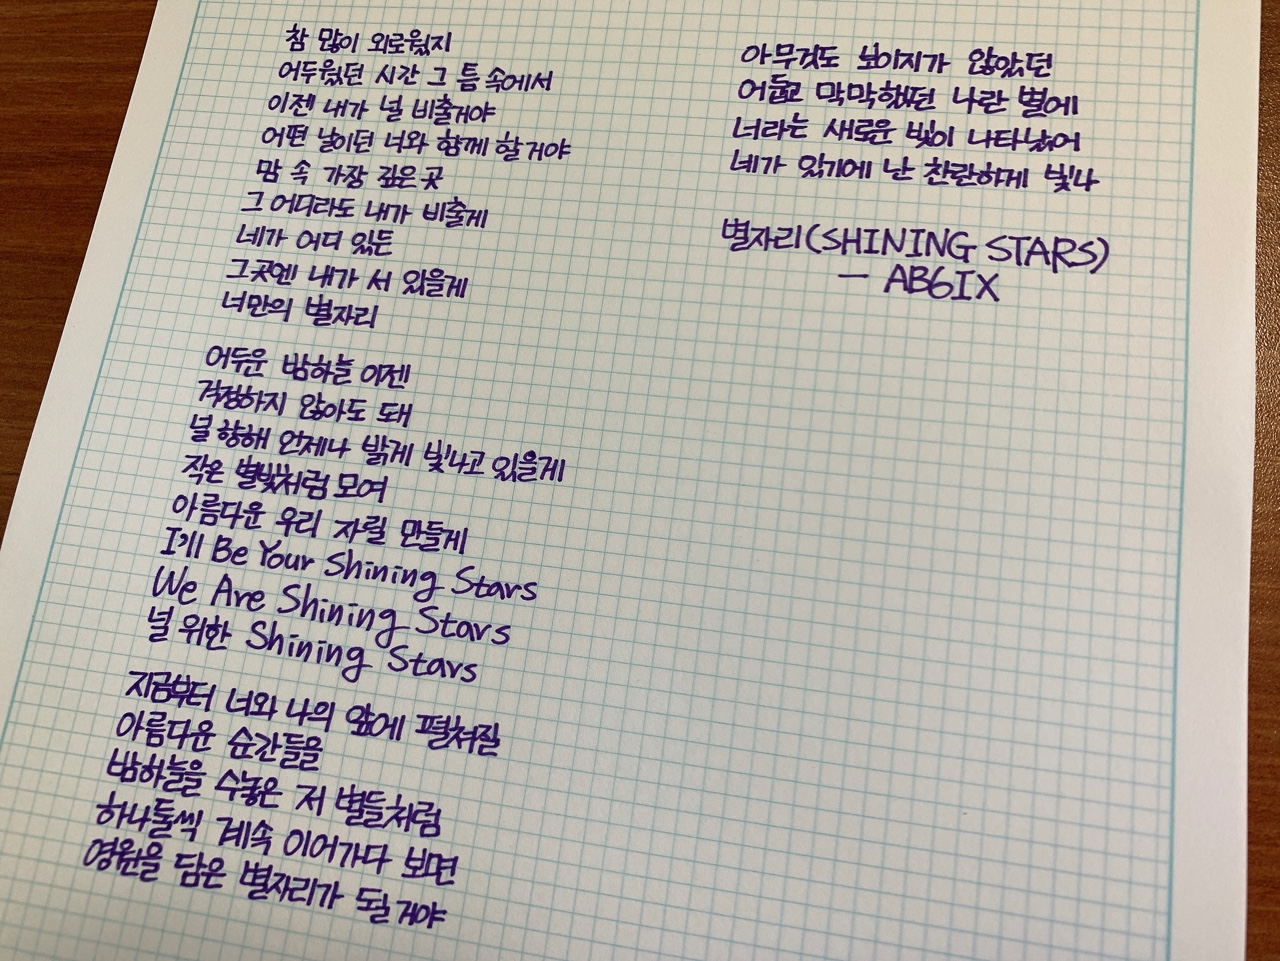 참 많이 외로웠지
어두웠던 시간 그 틈 속에서
이젠 내가 널 비출거야
어떤 날이던 너와 함께 할거야
맘 속 가장 깊은 곳
그 어디라도 내가 비출게
네가 어디 있든
그곳엔 내가 서 있을게
너만의 별자리
어두운 밤하늘 이젠
걱정하지 않아도 돼
널 향해 언제나 밝게 빛나고 있을게
작은 별빛처럼 모여
아름다운 우리 자릴 만들게
I'll Be Your Shining Stars
We Are Shining Stars
널 위한 Shining Stars
지금부터 너와 나의 앞에 펼쳐질
아름다운 순간들을
밤하늘을 수놓은 저 별들처럼
하나둘씩 계속 이어가다 보면
영원을 담은 별자리가 될거야
아무것도 보이지가 않았던
어둡고 막막했던 나란 별에
너라는 새로운 빛이 나타났어
네가 있기에 난 찬란하게 빛나
별자리(SHINING STARS)
— AB6IX